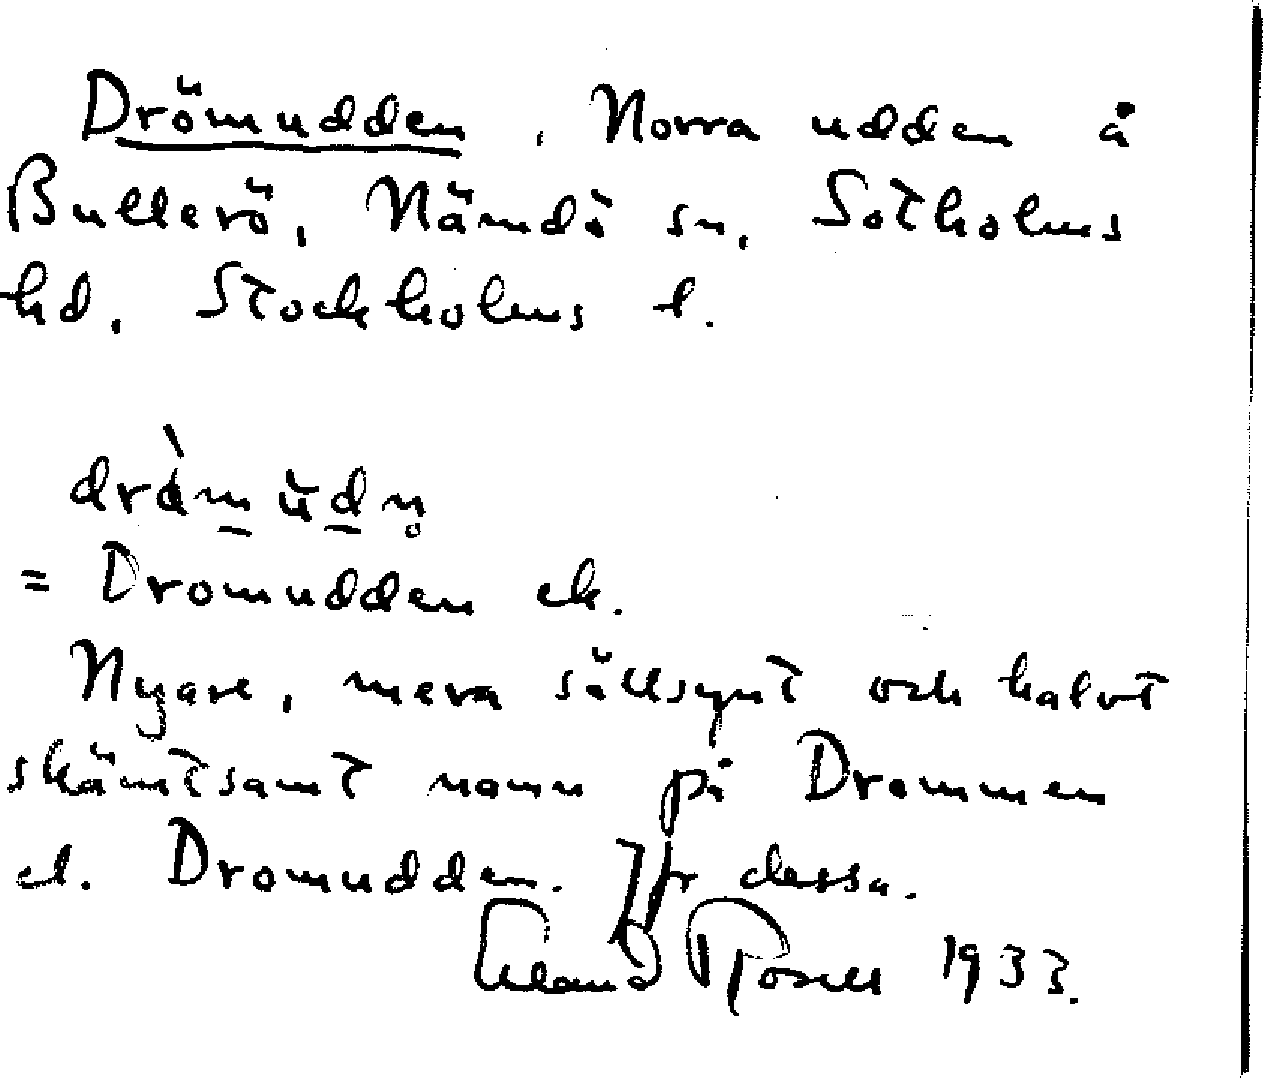 Drömudden, Norra udden å
Bullerö, Nämdö sn, Sotholms
hd, Stockholms l.
drömudn̥
= Dromudden el.
Nyare, mera sällsynt och halvt
skämtsamt namn på Drommen
el. Dromudden. Jfr dessa.
Erland Rosell 1933.